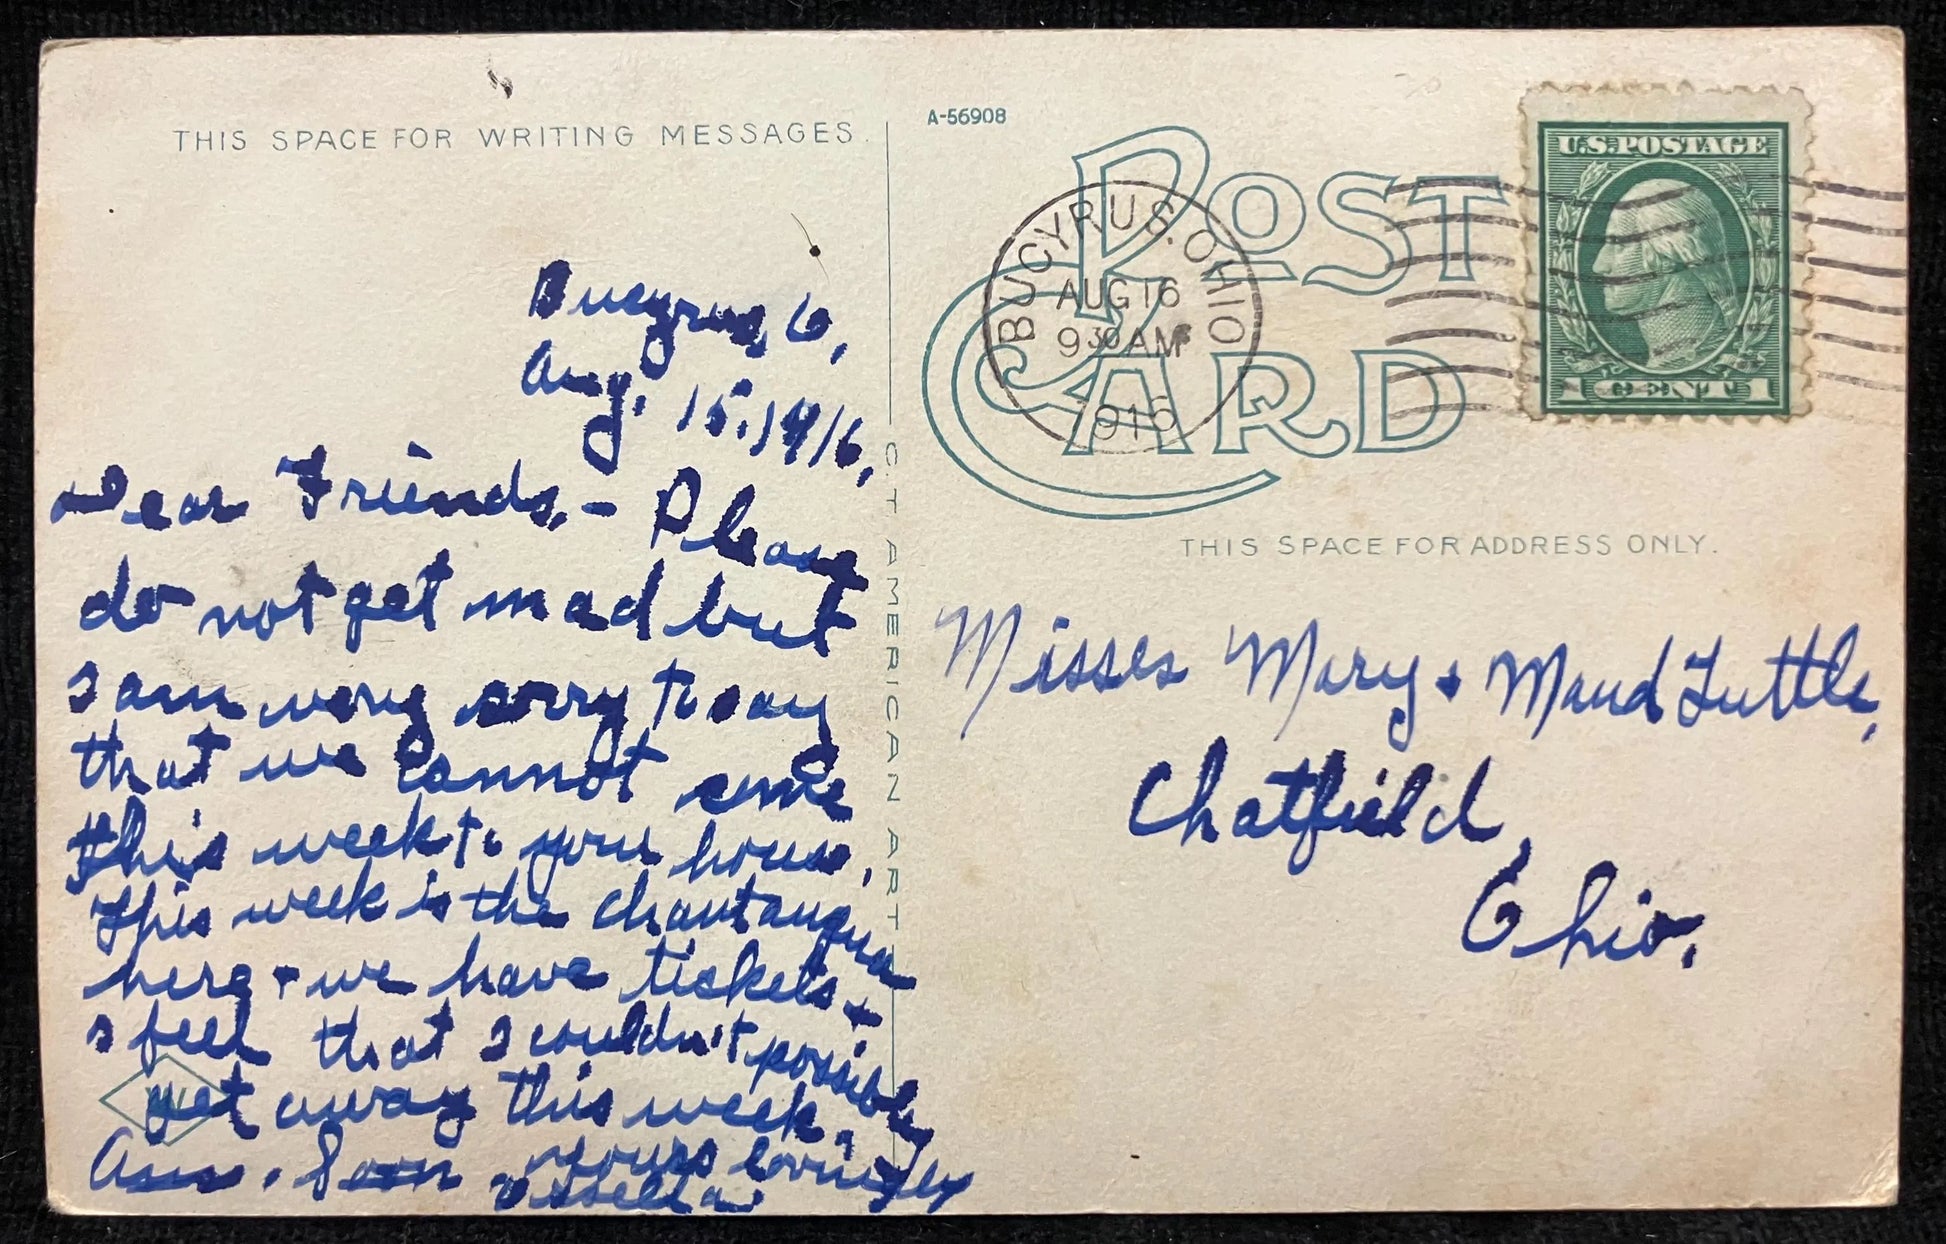 THIS SPACE FOR WRITING MESSAGES.
Bucyrus, O,
Aug. 15, 1916,
Dear Friends, - Please
do not get mad but
I am very sorry to say
that we cannot come
this week to your house,
This week is the chautauqua
here + we have tickets +
I feel that I couldn't possibly
get away this week.
Ans. Soon Yours lovingly
C.T. AMERICAN ART
A-56908
POST CARD
BUCYRUS, OHIO
AUG 16
9 30 AM
1916
U.S. POSTAGE
1 CENT 1
THIS SPACE FOR ADDRESS ONLY.
Misses Mary + Maud Tuttle,
Chatfield,
Ohio.